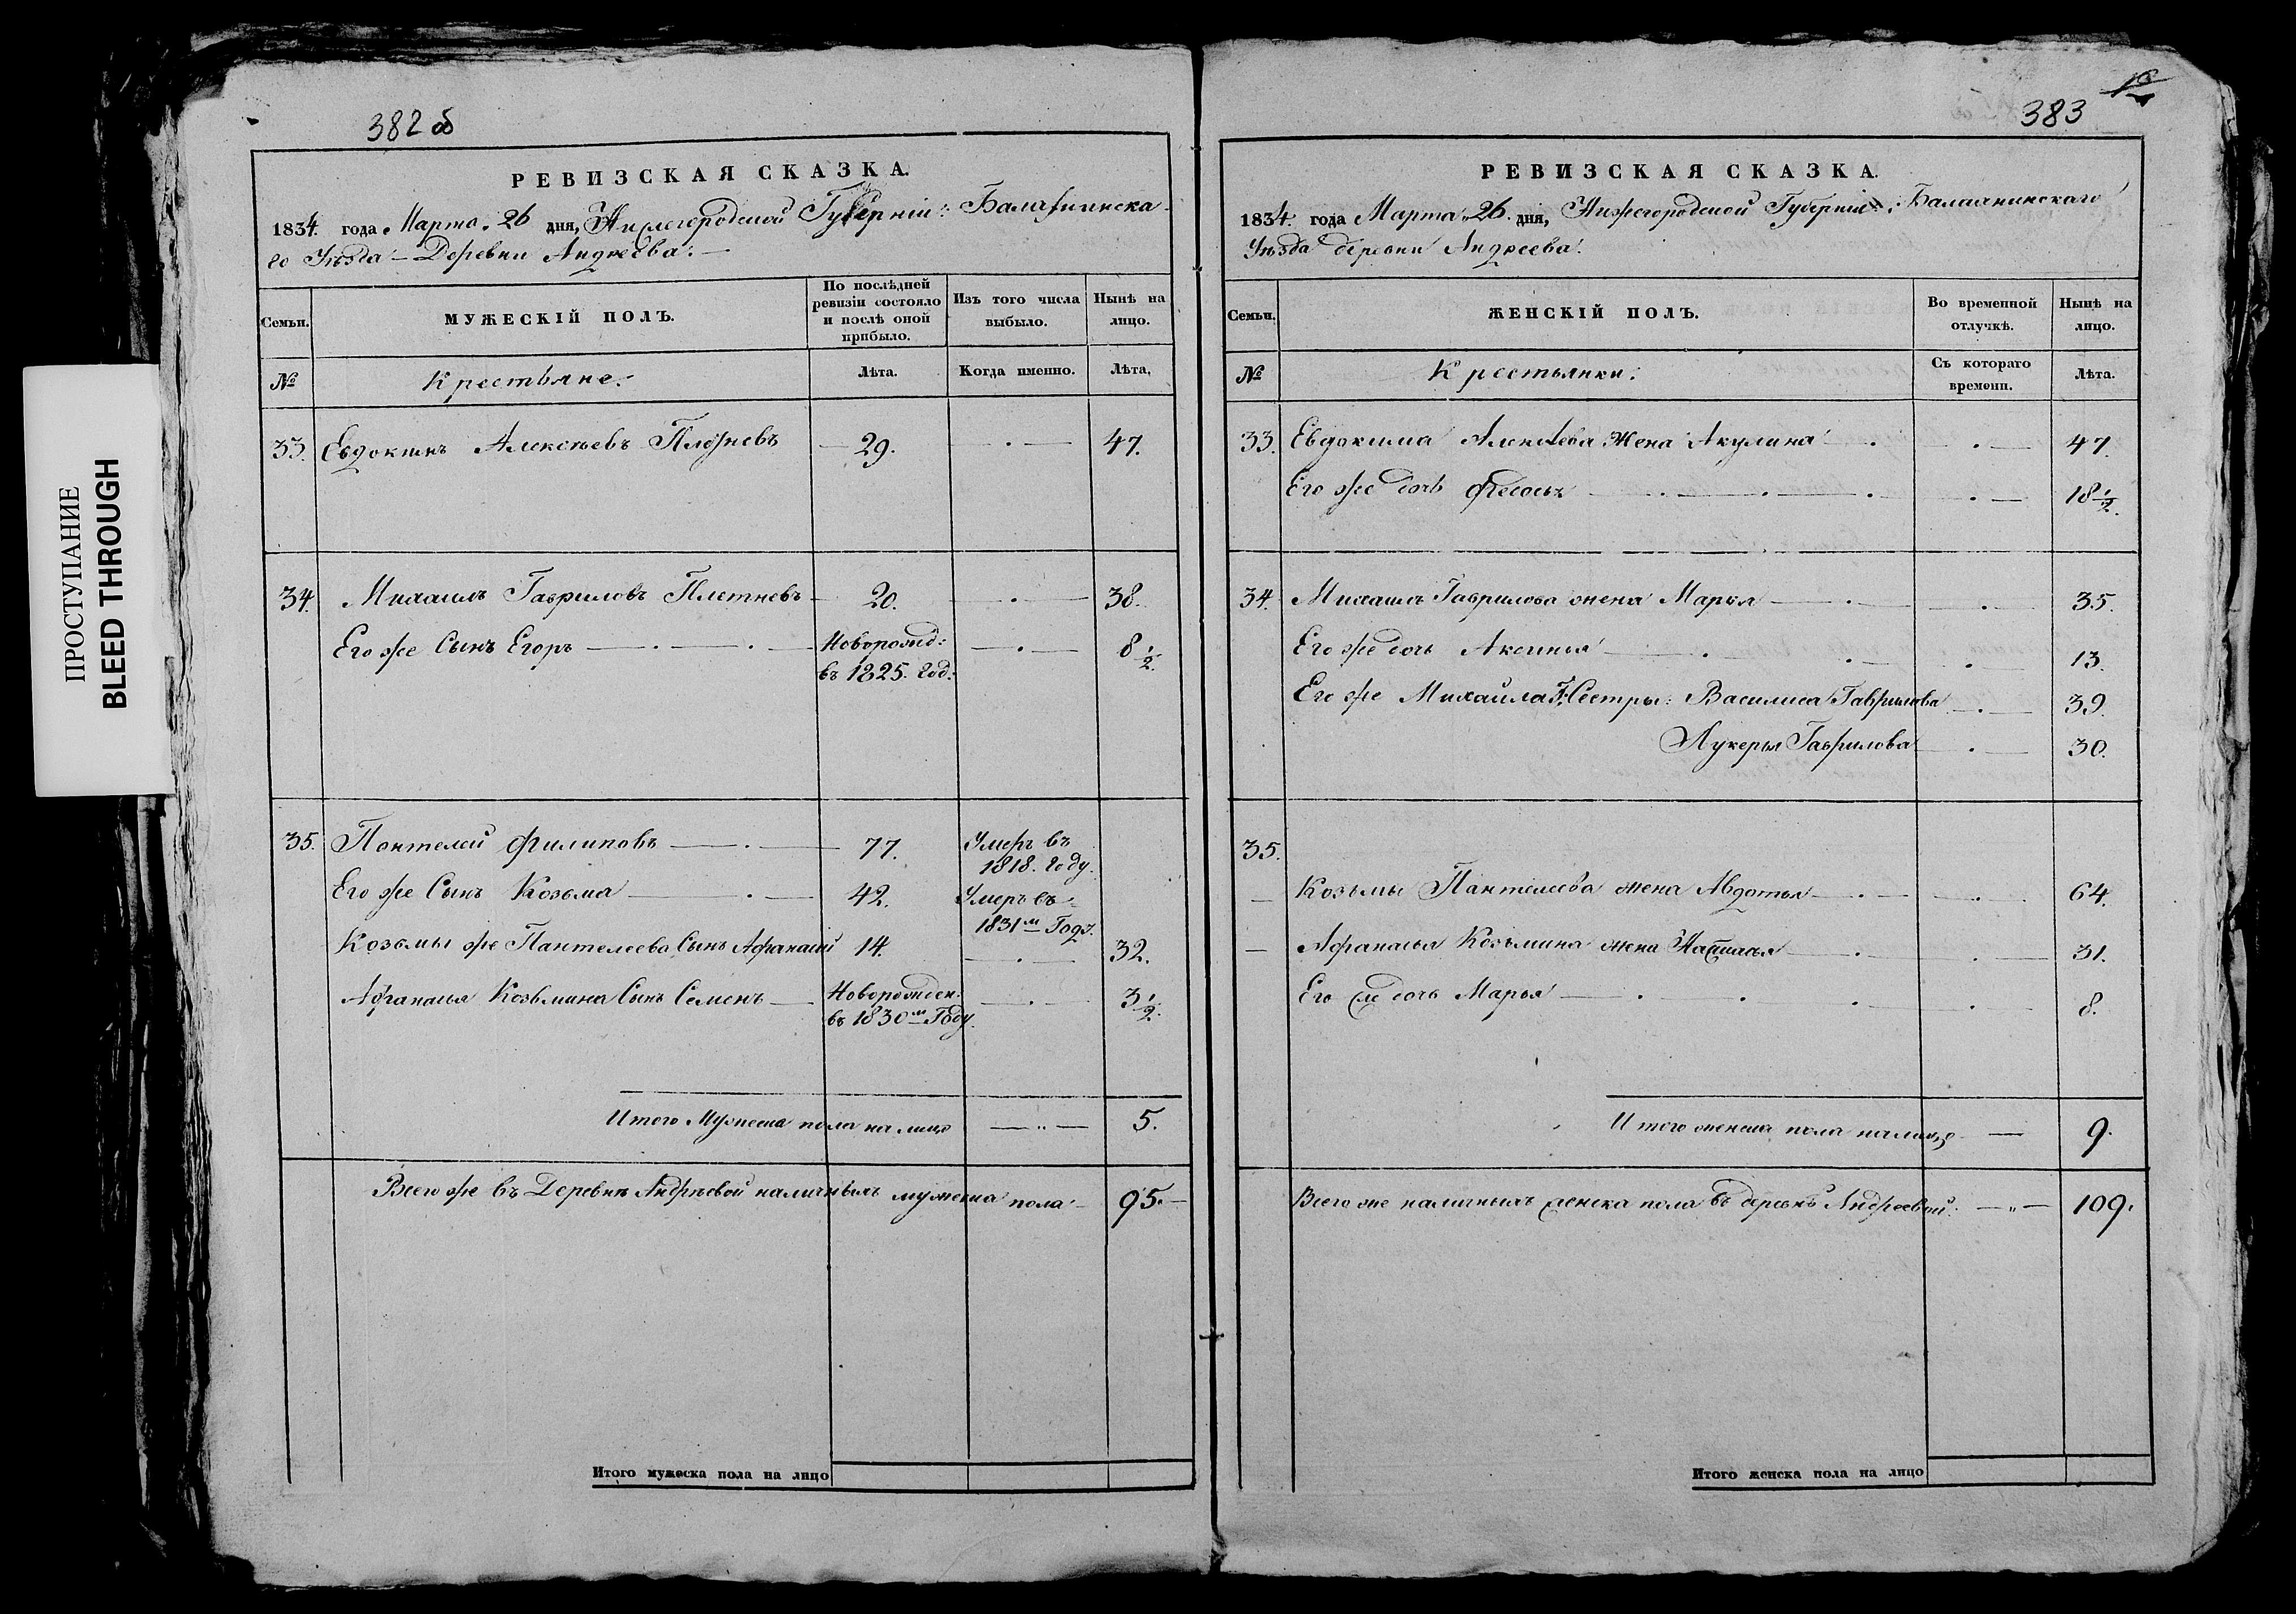 ПРОСТУПАНИЕ
BLEED THROUGH
382 об
РЕВИЗСКАЯ СКАЗКА.
1834. года Марта 26 дня, Нижегородской Губерніи: Балахнинска-
го Уѣзда – Деревни Андреева: –
Семьи. МУЖЕСКІЙ ПОЛЪ. По послѣдней ревизіи состояло и послѣ оной прибыло. Изъ того числа выбыло. Нынѣ на лицо.
№ Крестьяне: Лѣта. Когда именно. Лѣта.
33. Евдокимъ Алексѣевъ 29. 47.
34. Михаилъ Гавриловъ Плетневъ 20. 38.
Его же Сынъ Егоръ Новорожд: въ 1825. год: 8 1/2.
35. Пантелей Филиповъ 77. Умеръ въ 1818. году.
Его же Сынъ Козьма 42. Умеръ въ 1831м Годѣ.
Козьмы же Пантелеева Сынъ Афанасій 14. 32.
Афанасья Козьмина Сынъ Семенъ Новорожден. въ 1830м Году. 3 1/2.
Итого Мужеска пола на лицо 5.
Всего же въ Деревнѣ Андрѣевой наличныхъ мужеска пола 95.
Итого мужеска пола на лицо
383
РЕВИЗСКАЯ СКАЗКА.
1834. года Марта 26. дня, Нижегородской Губерніи: Балахнинскаго
Уѣзда деревни Андреева.
Семьи. ЖЕНСКІЙ ПОЛЪ. Во временной отлучкѣ. Нынѣ на лицо.
№ Крестьянки: Съ котораго времени. Лѣта.
33. Евдокима Жена Акулина 47.
Его же дочь 18 1/2.
34. Михаила Гаврилова жена Марья 35.
Его же дочь Аксинья 13.
Его же Михайла Г: Сестры: Василиса Гаврилова 39.
Лукерья Гаврилова 30.
35.
– Козьмы Пантелеева жена Авдотья 64.
– Афанасья Козьмина жена Настасья 31.
Его же дочь Марья 8.
Итого женска пола налицо 9.
Всего же наличныхъ женска пола въ деревнѣ Андреевой: 109.
Итого женска пола на лицо